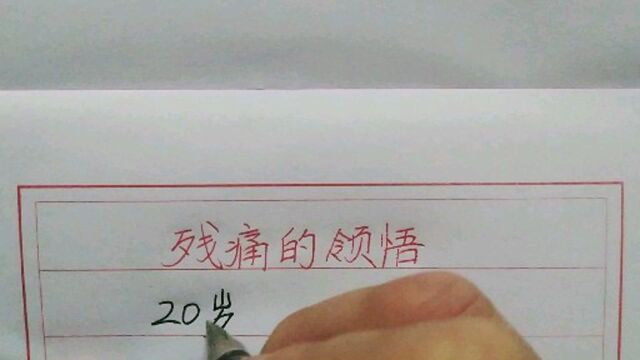 残痛的领悟
20岁